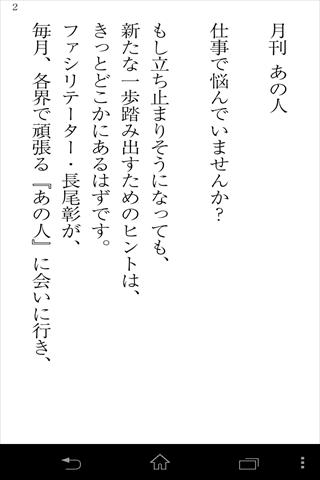 2
月刊 あの人
仕事で悩んでいませんか？
もし立ち止まりそうになっても、
新たな一歩踏み出すためのヒントは、
きっとどこかにあるはずです。
ファシリテーター・長尾彰が、
毎月、各界で頑張る『あの人』に会いに行き、